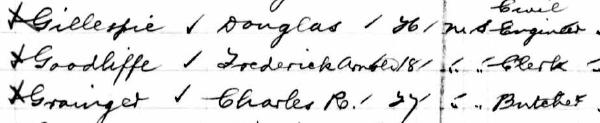 Civil
Gillespie ✓ Douglas / 26 / M S Engineer
Goodliffe ✓ Frederick Arnold / 18 / " " Clerk
Grainger ✓ Charles R. / 27 " " Butcher